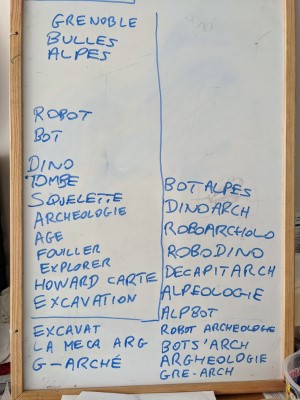 GRENOBLE
BULLES
ALPES
ROBOT
BOT
DINO
TOMBE
SQUELETTE
ARCHEOLOGIE
AGE
FOUILLER
EXPLORER
HOWARD CARTE
EXCAVATION
EXCAVAT
LA MECA ARG
G-ARCHÉ
BOTALPES
DINOARCH
ROBOARCHOLO
ROBODINO
DECAPITARCH
ALPEOLOGIE
ALPBOT
ROBOT ARCHEOLOGIE
BOTS'ARCH
ARGHEOLOGIE
GRE-ARCH